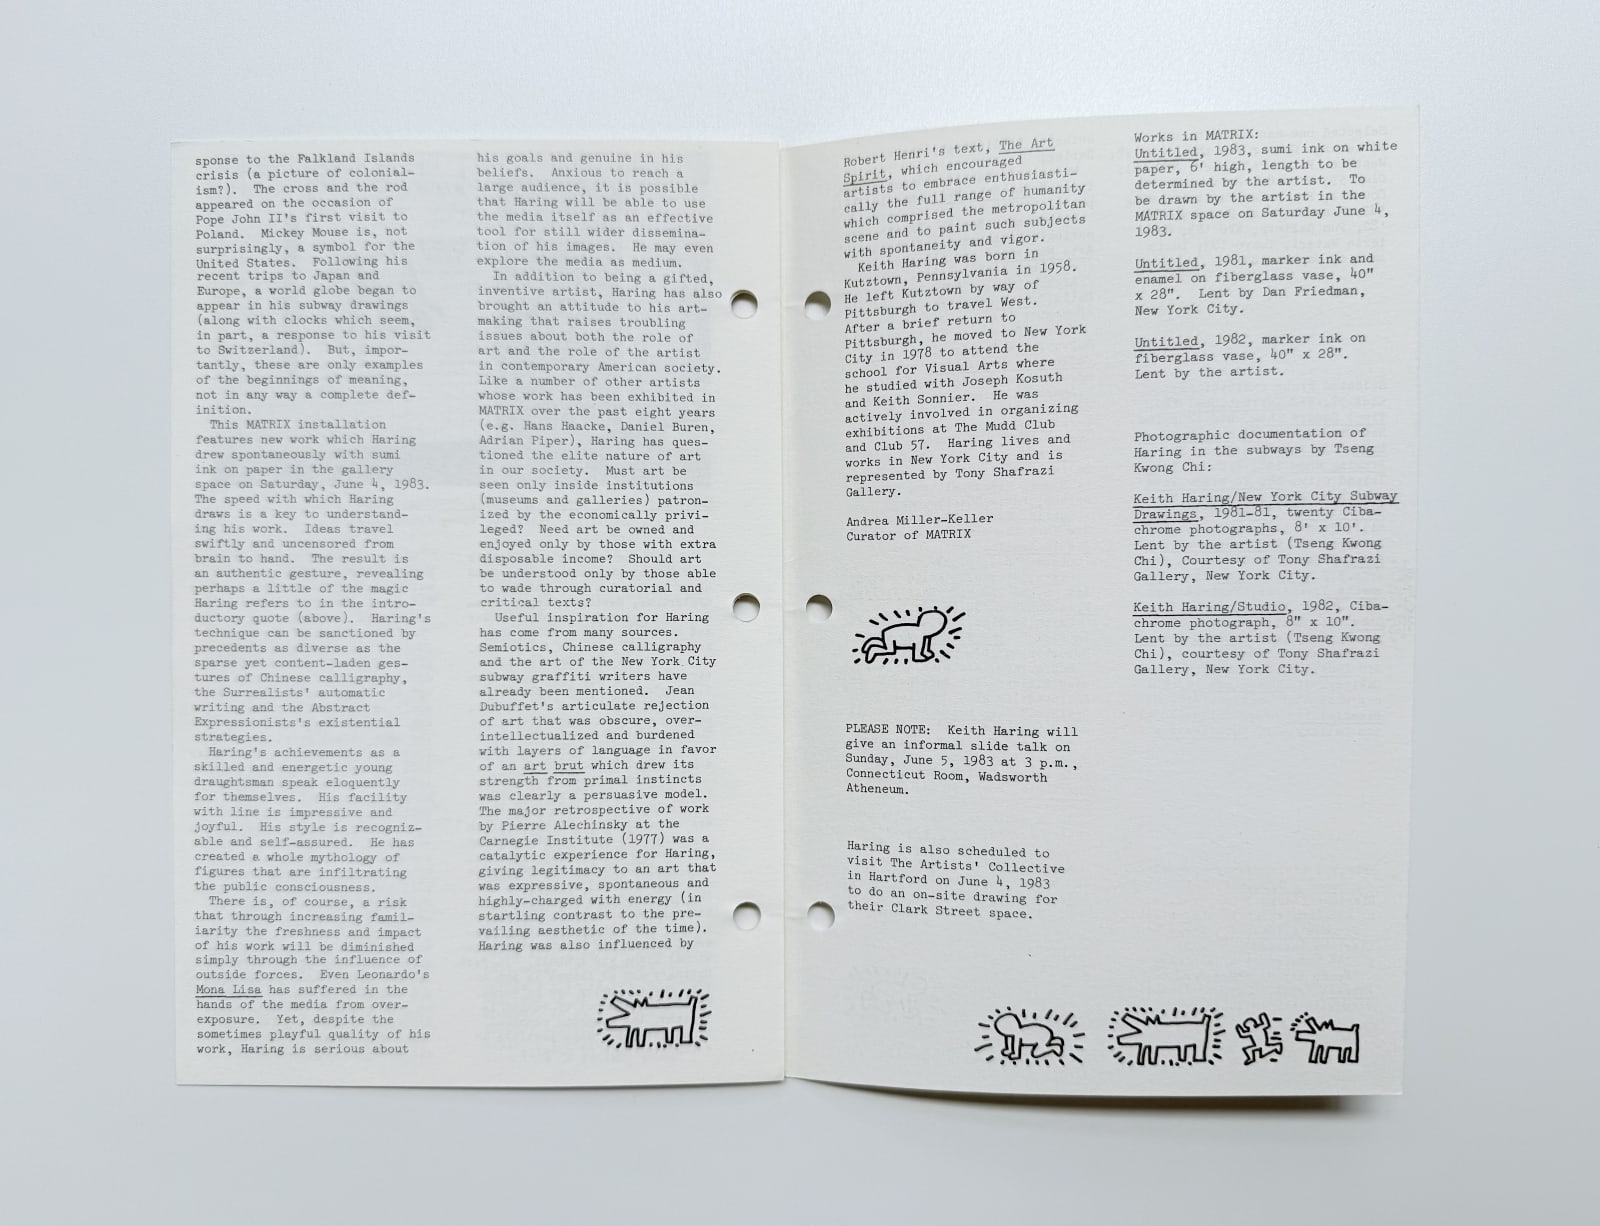 sponse to the Falkland Islands
crisis (a picture of colonial-
ism?).  The cross and the rod
appeared on the occasion of
Pope John II's first visit to
Poland.  Mickey Mouse is, not
surprisingly, a symbol for the
United States.  Following his
recent trips to Japan and
Europe, a world globe began to
appear in his subway drawings
(along with clocks which seem,
in part, a response to his visit
to Switzerland).  But, impor-
tantly, these are only examples
of the beginnings of meaning,
not in any way a complete def-
inition.
This MATRIX installation
features new work which Haring
drew spontaneously with sumi
ink on paper in the gallery
space on Saturday, June 4, 1983.
The speed with which Haring
draws is a key to understand-
ing his work.  Ideas travel
swiftly and uncensored from
brain to hand.  The result is
an authentic gesture, revealing
perhaps a little of the magic
Haring refers to in the intro-
ductory quote (above).  Haring's
technique can be sanctioned by
precedents as diverse as the
sparse yet content-laden ges-
tures of Chinese calligraphy,
the Surrealists' automatic
writing and the Abstract
Expressionists's existential
strategies.
Haring's achievements as a
skilled and energetic young
draughtsman speak eloquently
for themselves.  His facility
with line is impressive and
joyful.  His style is recogniz-
able and self-assured.  He has
created a whole mythology of
figures that are infiltrating
the public consciousness.
There is, of course, a risk
that through increasing famil-
iarity the freshness and impact
of his work will be diminished
simply through the influence of
outside forces.  Even Leonardo's
Mona Lisa has suffered in the
hands of the media from over-
exposure.  Yet, despite the
sometimes playful quality of his
work, Haring is serious about
his goals and genuine in his
beliefs.  Anxious to reach a
large audience, it is possible
that Haring will be able to use
the media itself as an effective
tool for still wider dissemina-
tion of his images.  He may even
explore the media as medium.
In addition to being a gifted,
inventive artist, Haring has also
brought an attitude to his art-
making that raises troubling
issues about both the role of
art and the role of the artist
in contemporary American society.
Like a number of other artists
whose work has been exhibited in
MATRIX over the past eight years
(e.g. Hans Haacke, Daniel Buren,
Adrian Piper), Haring has ques-
tioned the elite nature of art
in our society.  Must art be
seen only inside institutions
(museums and galleries) patron-
ized by the economically privi-
leged?  Need art be owned and
enjoyed only by those with extra
disposable income?  Should art
be understood only by those able
to wade through curatorial and
critical texts?
Useful inspiration for Haring
has come from many sources.
Semiotics, Chinese calligraphy
and the art of the New York City
subway graffiti writers have
already been mentioned.  Jean
Dubuffet's articulate rejection
of art that was obscure, over-
intellectualized and burdened
with layers of language in favor
of an art brut which drew its
strength from primal instincts
was clearly a persuasive model.
The major retrospective of work
by Pierre Alechinsky at the
Carnegie Institute (1977) was a
catalytic experience for Haring,
giving legitimacy to an art that
was expressive, spontaneous and
highly-charged with energy (in
startling contrast to the pre-
vailing aesthetic of the time).
Haring was also influenced by
Robert Henri's text, The Art
Spirit, which encouraged
artists to embrace enthusiasti-
cally the full range of humanity
which comprised the metropolitan
scene and to paint such subjects
with spontaneity and vigor.
Keith Haring was born in
Kutztown, Pennsylvania in 1958.
He left Kutztown by way of
Pittsburgh to travel West.
After a brief return to
Pittsburgh, he moved to New York
City in 1978 to attend the
school for Visual Arts where
he studied with Joseph Kosuth
and Keith Sonnier.  He was
actively involved in organizing
exhibitions at The Mudd Club
and Club 57.  Haring lives and
works in New York City and is
represented by Tony Shafrazi
Gallery.
Andrea Miller-Keller
Curator of MATRIX
PLEASE NOTE:  Keith Haring will
give an informal slide talk on
Sunday, June 5, 1983 at 3 p.m.,
Connecticut Room, Wadsworth
Atheneum.
Haring is also scheduled to
visit The Artists' Collective
in Hartford on June 4, 1983
to do an on-site drawing for
their Clark Street space.
Works in MATRIX:
Untitled, 1983, sumi ink on white
paper, 6' high, length to be
determined by the artist.  To
be drawn by the artist in the
MATRIX space on Saturday June 4,
1983.
Untitled, 1981, marker ink and
enamel on fiberglass vase, 40"
x 28".  Lent by Dan Friedman,
New York City.
Untitled, 1982, marker ink on
fiberglass vase, 40" x 28".
Lent by the artist.
Photographic documentation of
Haring in the subways by Tseng
Kwong Chi:
Keith Haring/New York City Subway
Drawings, 1981-81, twenty Ciba-
chrome photographs, 8' x 10'.
Lent by the artist (Tseng Kwong
Chi), Courtesy of Tony Shafrazi
Gallery, New York City.
Keith Haring/Studio, 1982, Ciba-
chrome photograph, 8" x 10".
Lent by the artist (Tseng Kwong
Chi), courtesy of Tony Shafrazi
Gallery, New York City.